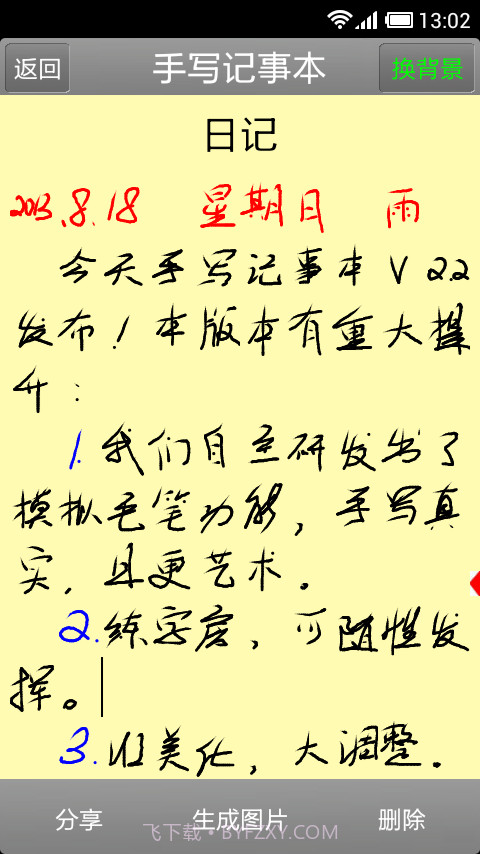 13:02
返回 手写记事本 换背景
日记
2013.8.18 星期日 雨
今天手写记事本V2.2
发布！本版本有重大提
升：
1.我们自主研发出了
模拟毛笔功能，手写真
实，且更艺术。
2.练字房，可随性发
挥。
3.UI美化，大调整。
分享 生成图片 删除
飞下载·BYFZXY.COM